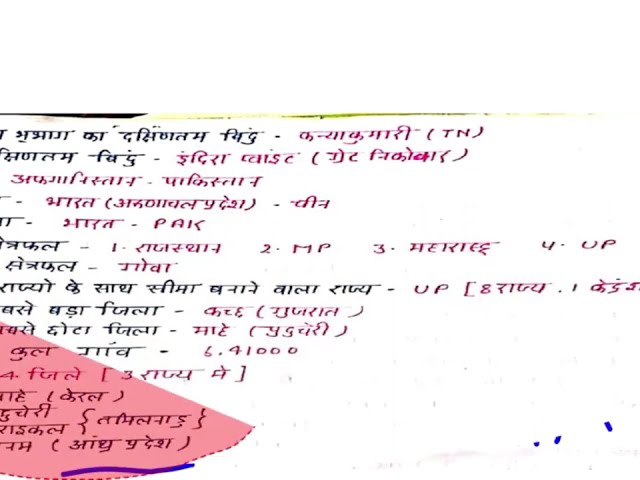 भूभाग का दक्षिणतम बिंदु - कन्याकुमारी (TN)
क्षिणतम बिंदु - इंदिरा प्वाइंट (ग्रेट निकोबार)
अफगानिस्तान - पाकिस्तान
- भारत (अरुणाचल प्रदेश) - चीन
- भारत - PAK
क्षेत्रफल - 1. राजस्थान 2. MP 3. महाराष्ट्र 4. UP
क्षेत्रफल - गोवा
राज्यो के साथ सीमा बनाने वाला राज्य - UP [8 राज्य . 1 केंद्रश
बसे बड़ा जिला - कच्छ (गुजरात)
बसे छोटा जिला - माहे (पुदुचेरी)
कुल गाँव - 6.41000
4 जिले [3 राज्य मे]
माहे (केरल)
दुचेरी
राइकल } {तामिलनाडु}
नम (आंध्र प्रदेश)